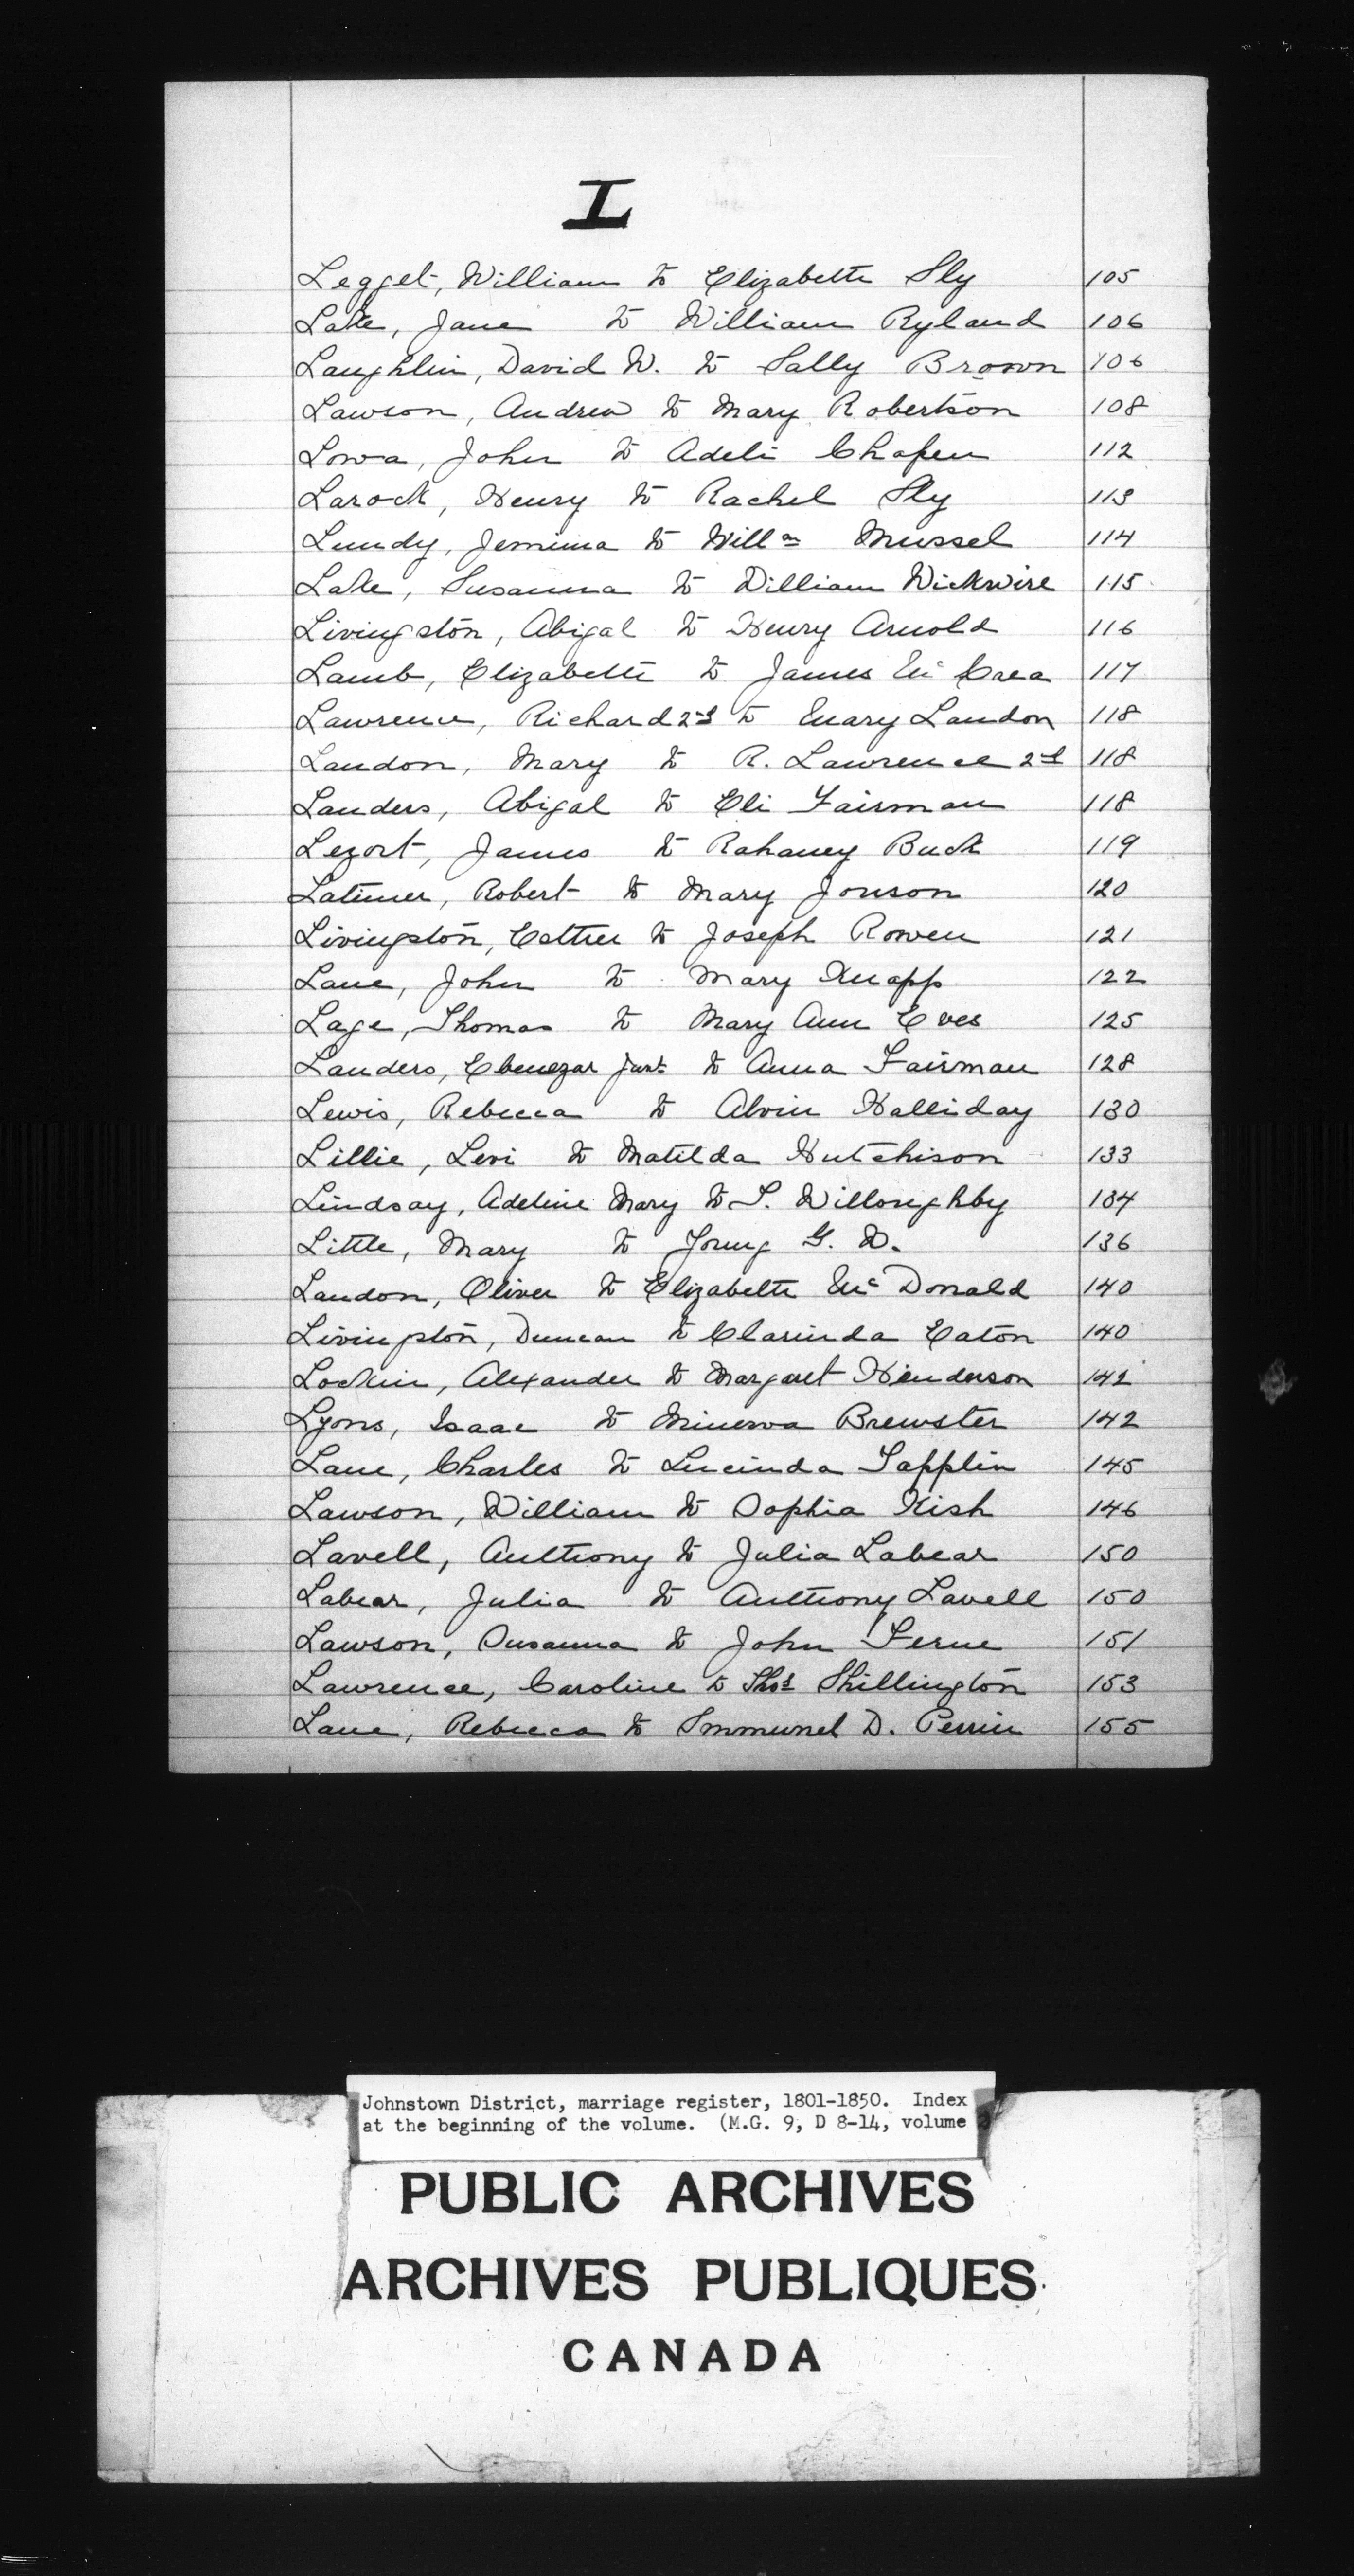 L
Legget, William to Elizabeth Sly 105
Lake, Jane to William Ryland 106
Laughlin, David W. to Sally Brown 106
Lawson, Andrew to Mary Robertson 108
Lowa, John to Adeli Chapen 112
Larock, Henry to Rachel Sly 113
Lundy, Jemima to Willm Mussel 114
Lake, Susanna to William Wickwire 115
Livingston, Abigal to Henry Arnold 116
Lamb, Elizabeth to James Mc Crea 117
Lawrence, Richard 2nd to Mary Landon 118
Landon, Mary to R. Lawrence 2nd 118
Landers, Abigal to Eli Fairman 118
Lezort, James to Rahaney Buck 119
Latimer, Robert to Mary Jonson 120
Livingston, Esther to Joseph Rowen 121
Lane, John to Mary Knapp 122
Lage, Thomas to Mary Ann Eves 125
Landers, Ebenezar Junr to Anna Fairman 128
Lewis, Rebecca to Alvin Halliday 130
Lillie, Levi to Matilda Hutchison 133
Lindsay, Adeline Mary to S. Willoughby 134
Little, Mary to Young G. W. 136
Landon, Oliver to Elizabeth Mc Donald 140
Livingston, Duncan to Clarinda Eaton 140
Lockin, Alexander to Margaret Henderson 142
Lyons, Isaac to Minerva Brewster 142
Lane, Charles to Lucinda Tapplin 145
Lawson, William to Sophia Kish 146
Lavell, Anthony to Julia Labear 150
Labear, Julia to Anthony Lavell 150
Lawson, Susanna to John Ferne 151
Lawrence, Caroline to Thos Shillington 153
Lane, Rebecca to Immunel D. Perrin 155
Johnstown District, marriage register, 1801-1850. Index
at the beginning of the volume. (M.G. 9, D 8-14, volume
PUBLIC ARCHIVES
ARCHIVES PUBLIQUES
CANADA